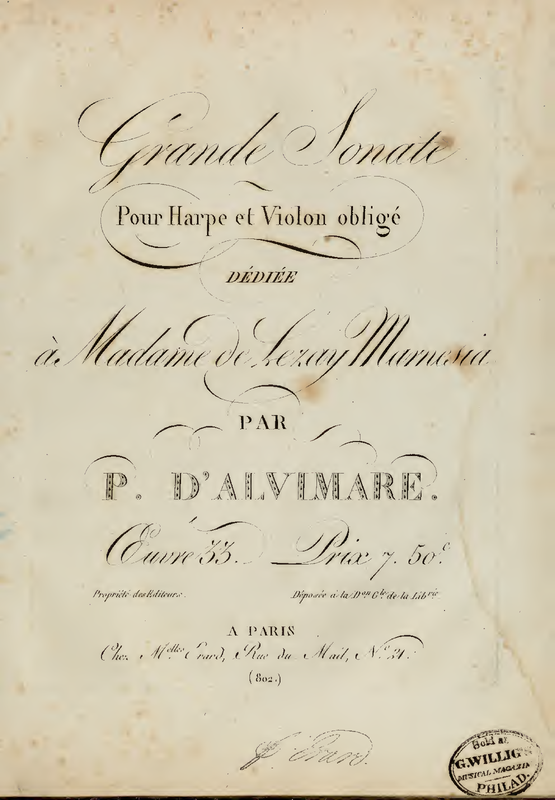 Grande Sonate
Pour Harpe et Violon obligé
DÉDIÉE
à Madame de Lezay Marnesia
PAR
P. D'ALVIMARE.
Œuvre 33. Prix 7. 50.c
Propriété des Editeurs. Déposée à la D.on G.le de la Lib.rie
A PARIS
Chez M.elles Erard, Rue du Mail, N.o 21.
(802.)
Erard.
Sold at
G. WILLIG'S
MUSICAL MAGAZIN
PHILAD.